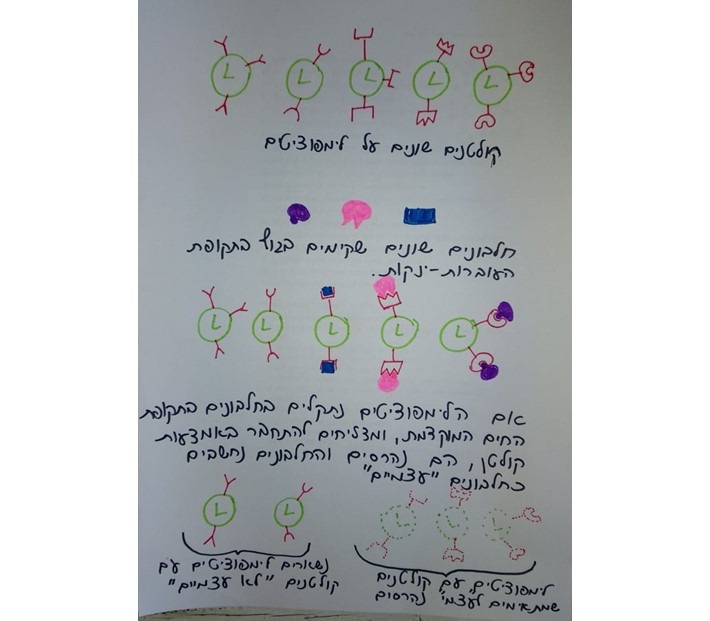 L L L L L
קולטנים שונים על לימפוציטים
חלבונים שונים שקימים בגוף בתקופת
העוברות-ינקות.
L L L L L
אם הלימפוציטים נתקלים בחלבונים בתקופת
החיים המוקדמת, ומצליחים להתחבר באמצעות
קולטן, הם נהרסים והחלבונים נחשבים
כחלבונים "עצמיים"
L L L L L
נשארים לימפוציטים עם
קולטנים "לא עצמיים"
לימפוציטים, עם קולטנים
שמתאימים לעצמי נהרסים